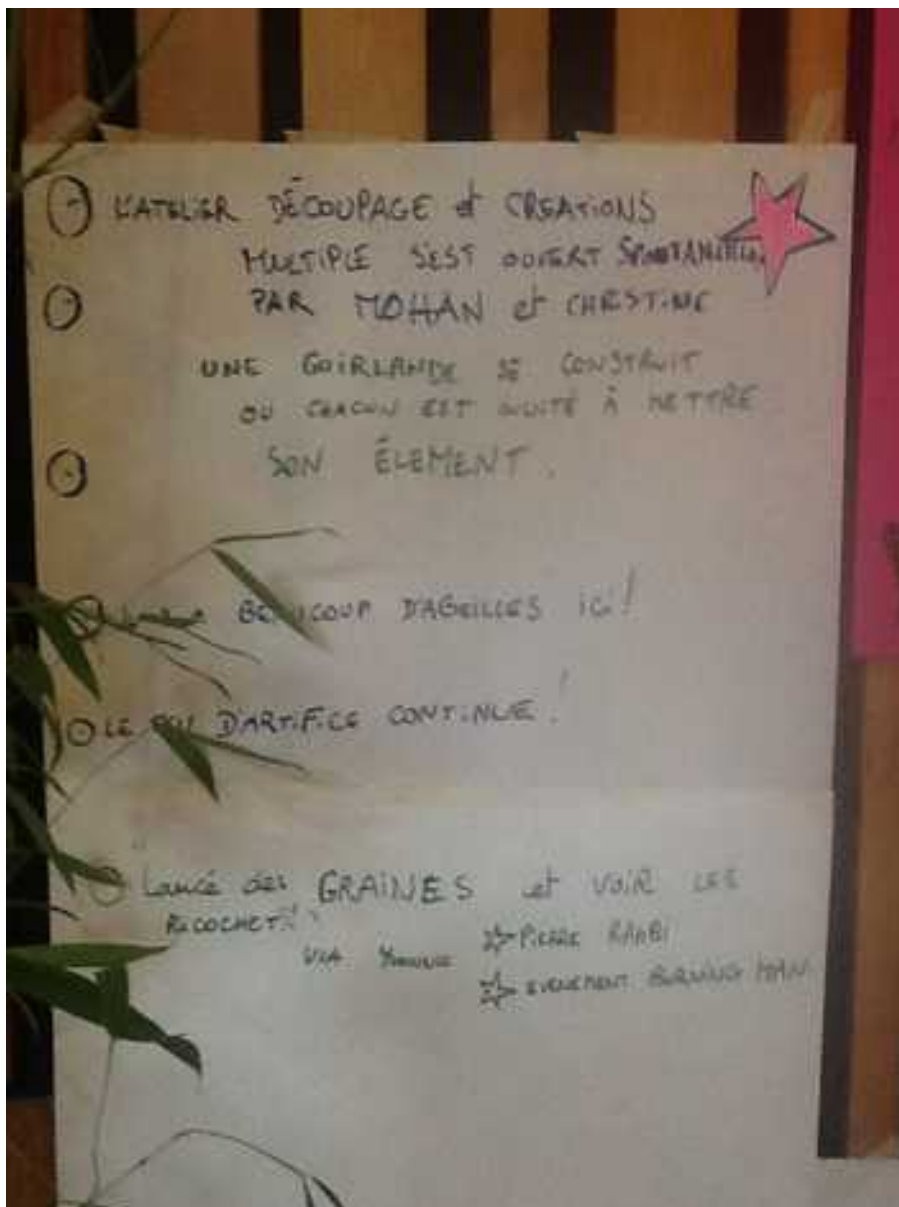 L'ATELIER DÉCOUPAGE et CREATIONS
MULTIPLE S'EST OUVERT
PAR MOHAN et CHRISTINE
UNE GUIRLANDE SE CONSTRUIT
OU CHACUN EST INVITÉ À METTRE
SON ÉLEMENT.
BEAUCOUP D'ABEILLES ICI!
LE D'ARTIFICE CONTINUE!
Lancé des GRAINES et VOIR LES
RICOCHET!
VIA PIERRE RAHBI
EVENEMENT BURNING MAN